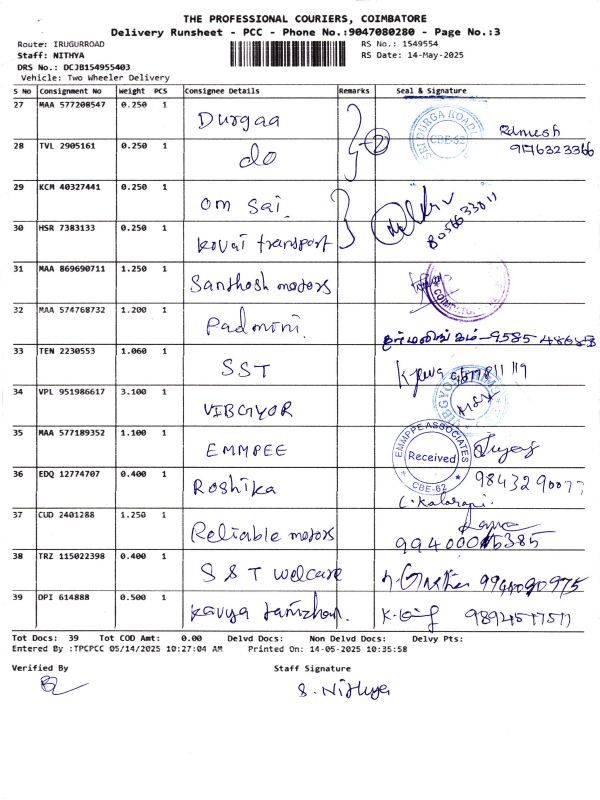 THE PROFESSIONAL COURIERS, COIMBATORE
Delivery Runsheet - PCC - Phone No.:9047080280 - Page No.:3
Route: IRUGURROAD RS No.: 1549554
Staff: NITHYA RS Date: 14-May-2025
DRS No.: DCJB154955403
Vehicle: Two Wheeler Delivery
S No Consignment No Weight PCS Consignee Details Remarks Seal & Signature
27 MAA 577208547 0.250 1 Durgaa 2 SRI DURGA ROAD CBE-62 Ramesh
28 TVL 2905161 0.250 1 do
29 KCM 40327441 0.250 1 om sai 8056633011
30 HSR 7383133 0.250 1 kovai transport
31 MAA 869690711 1.250 1 Santhosh motors
32 MAA 574768732 1.200 1 Padmini
33 TEN 2230553 1.060 1 SST
34 VPL 951986617 3.100 1 VIBGYOR
35 MAA 577189352 1.100 1 EMMPEE EMMPPE ASSOCIATES Received CBE-62
36 EDQ 12774707 0.400 1 Roshika 9843290077
C. Kalarani
37 CUD 2401288 1.250 1 Reliable motors
38 TRZ 115022398 0.400 1 S S T welcare
39 DPI 614888 0.500 1 kavya tamizhan
Tot Docs: 39 Tot COD Amt: 0.00 Delvd Docs: Non Delvd Docs: Delvy Pts:
Entered By :TPCPCC 05/14/2025 10:27:04 AM Printed On: 14-05-2025 10:35:58
Verified By Staff Signature
S. Nithya